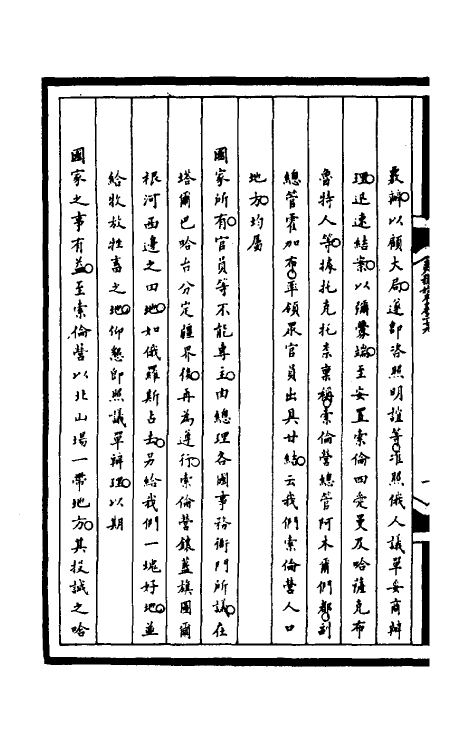 裁辦以顧大局遵即咨照明誼等准照俄人議單妥商辦
理迅速結案以彌釁端至安置索倫四愛曼及哈薩克布
魯特人等據托克托柰稟稱索倫營總管阿木爾們都副
總管霍加布率領眾官員出具甘結云我們索倫營人口
地方均屬
國家所有官員等不能專主由總理各國事務衙門所議在
塔爾巴哈台分定疆界後再為遵行索倫營鑲藍旗圖爾
根河西邊之田地如俄羅斯占去另給我們一塊好地並
給牧放牲畜之地仰懇即照議單辦理以期
國家之事有益至索倫營以北山場一帶地方其投誠之哈